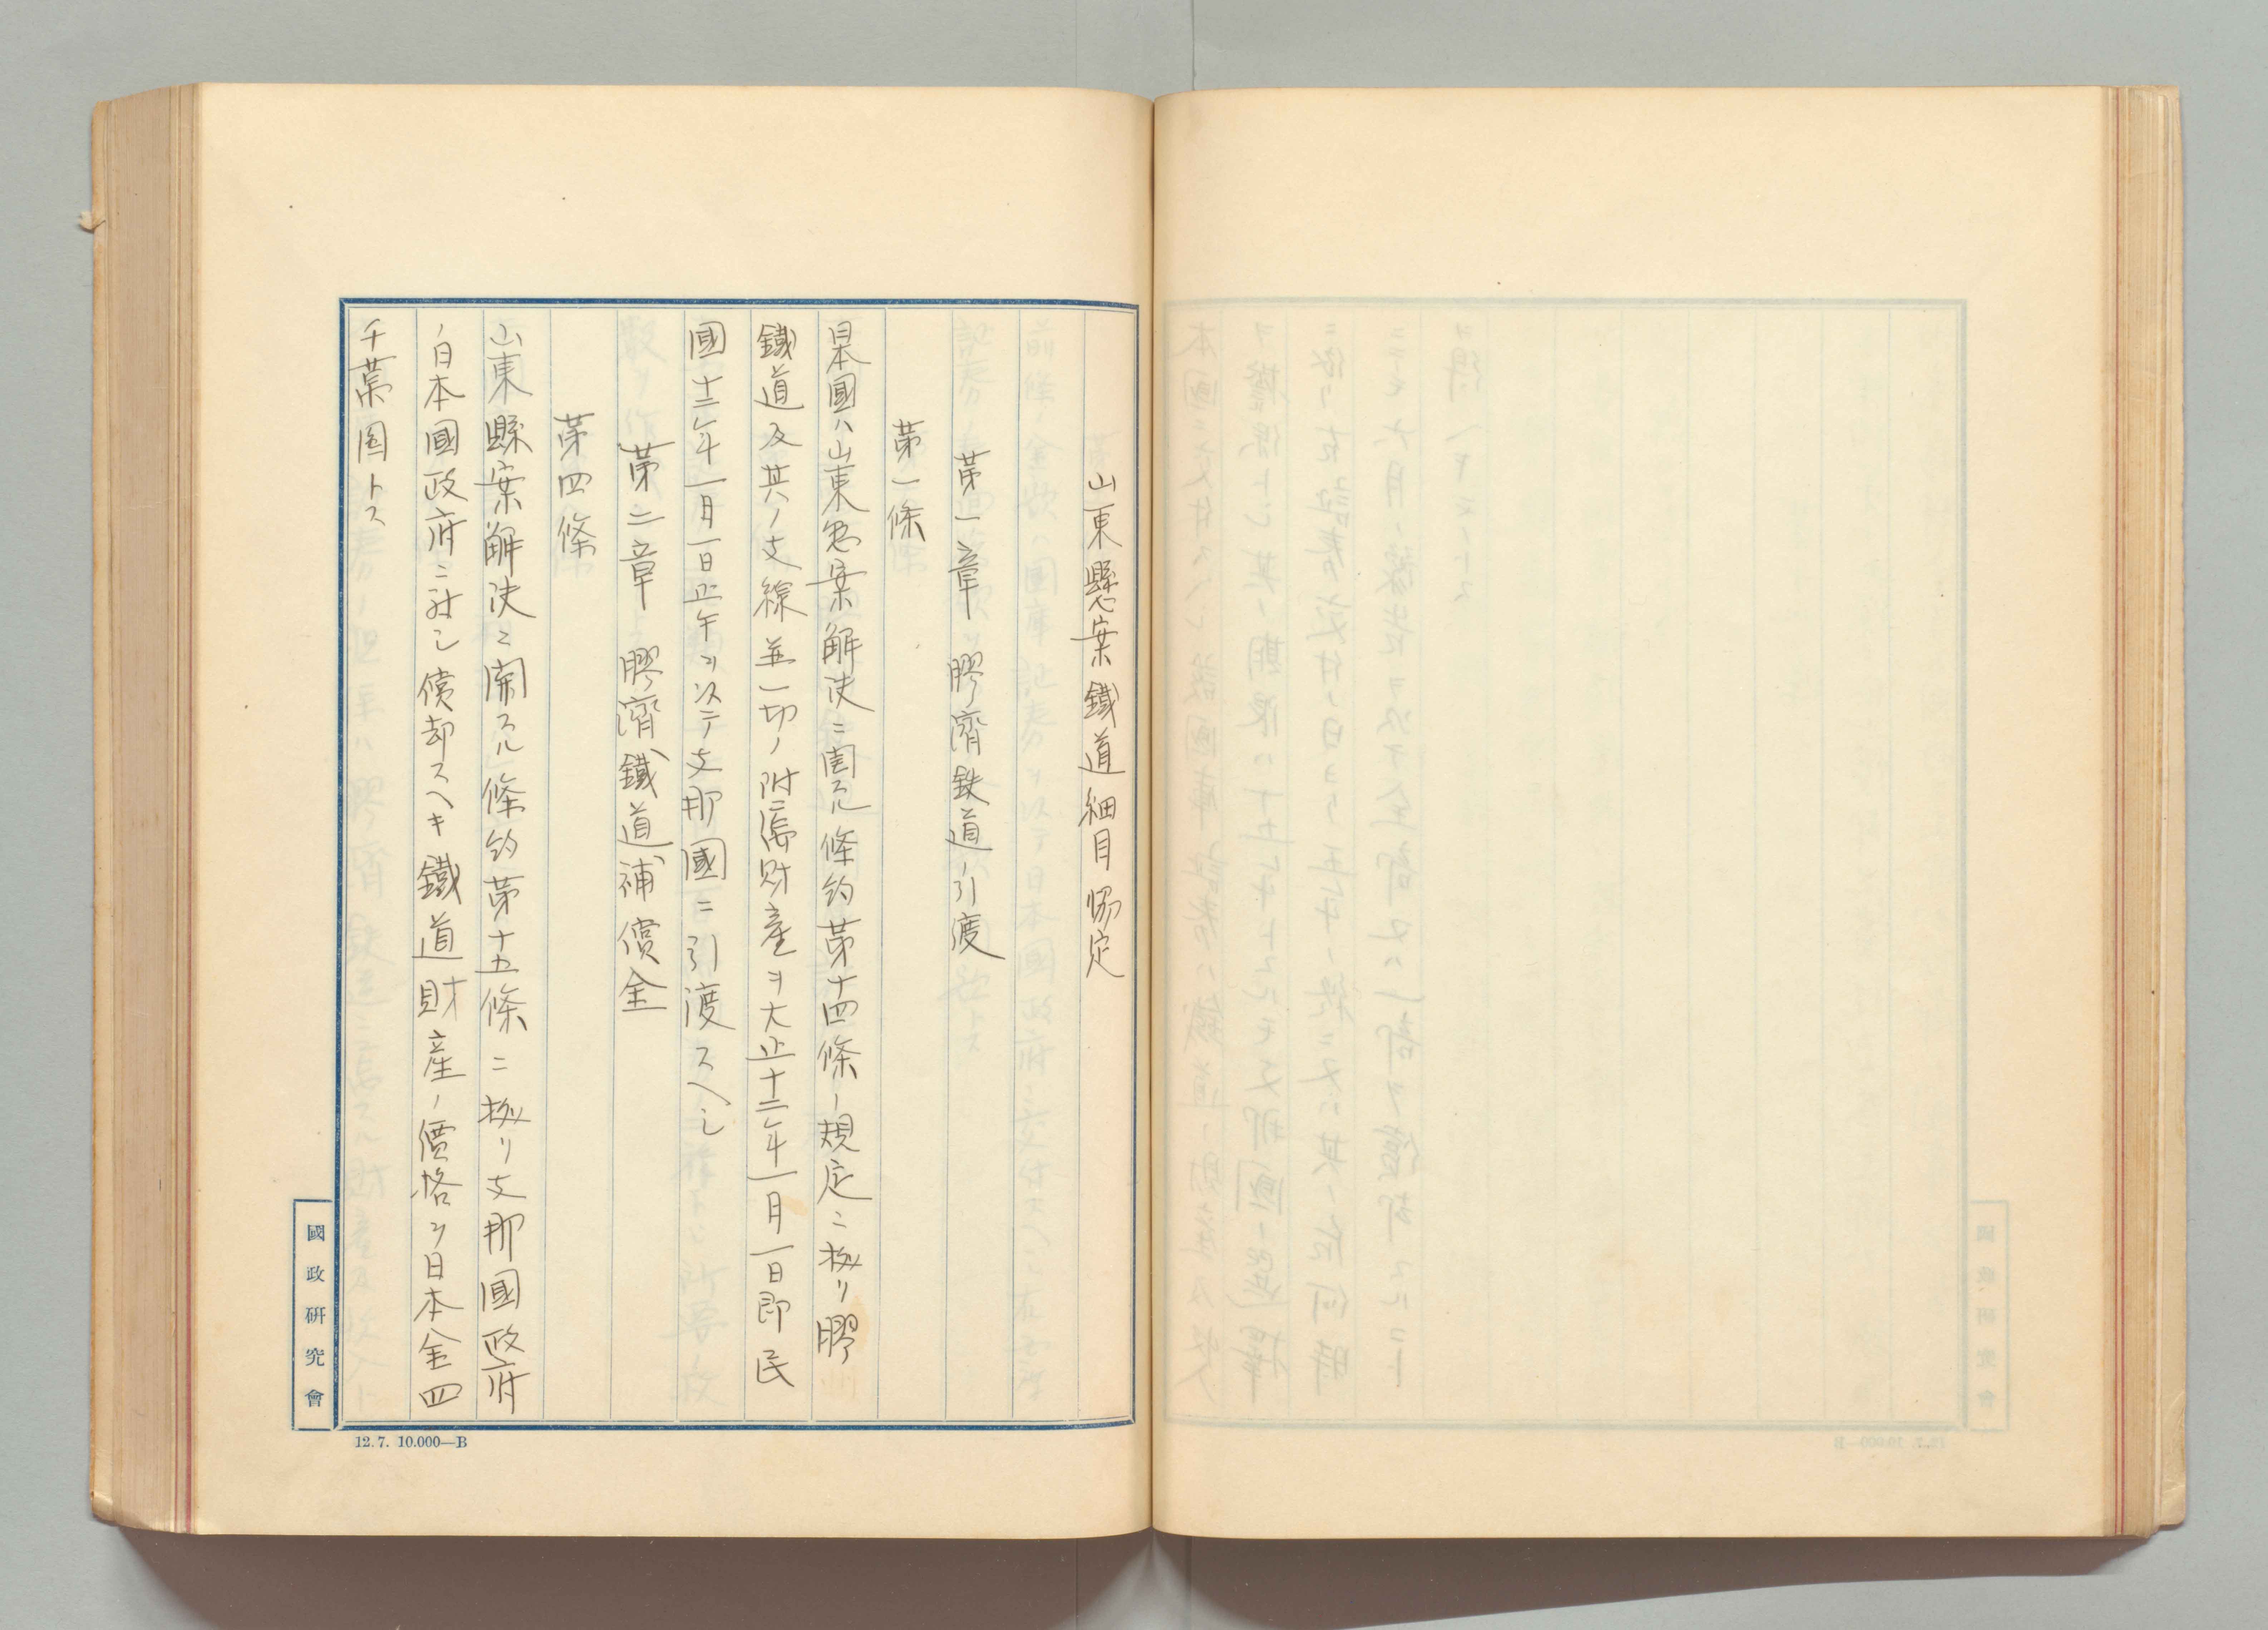 山東懸案鐵道細目協定
第一章　膠濟鉄道ノ引渡
第一條
日本國ハ山東懸案解決ニ関スル條約第十四條ノ規定ニ拠リ膠
鐵道及其ノ支線並一切ノ附属財産ヲ大正十二年一月一日即民
國十二年一月一日正午ヲ以テ支那國ニ引渡スヘシ
第二章　膠濟鐵道補償金
第四條
山東縣案解決ニ関スル條約第十五條ニ拠リ支那國政府
ノ日本國政府ニ対シ償却スヘキ鐵道財産ノ價格ヲ日本金四
千萬圓トス
國政研究會
12.7. 10.000—B